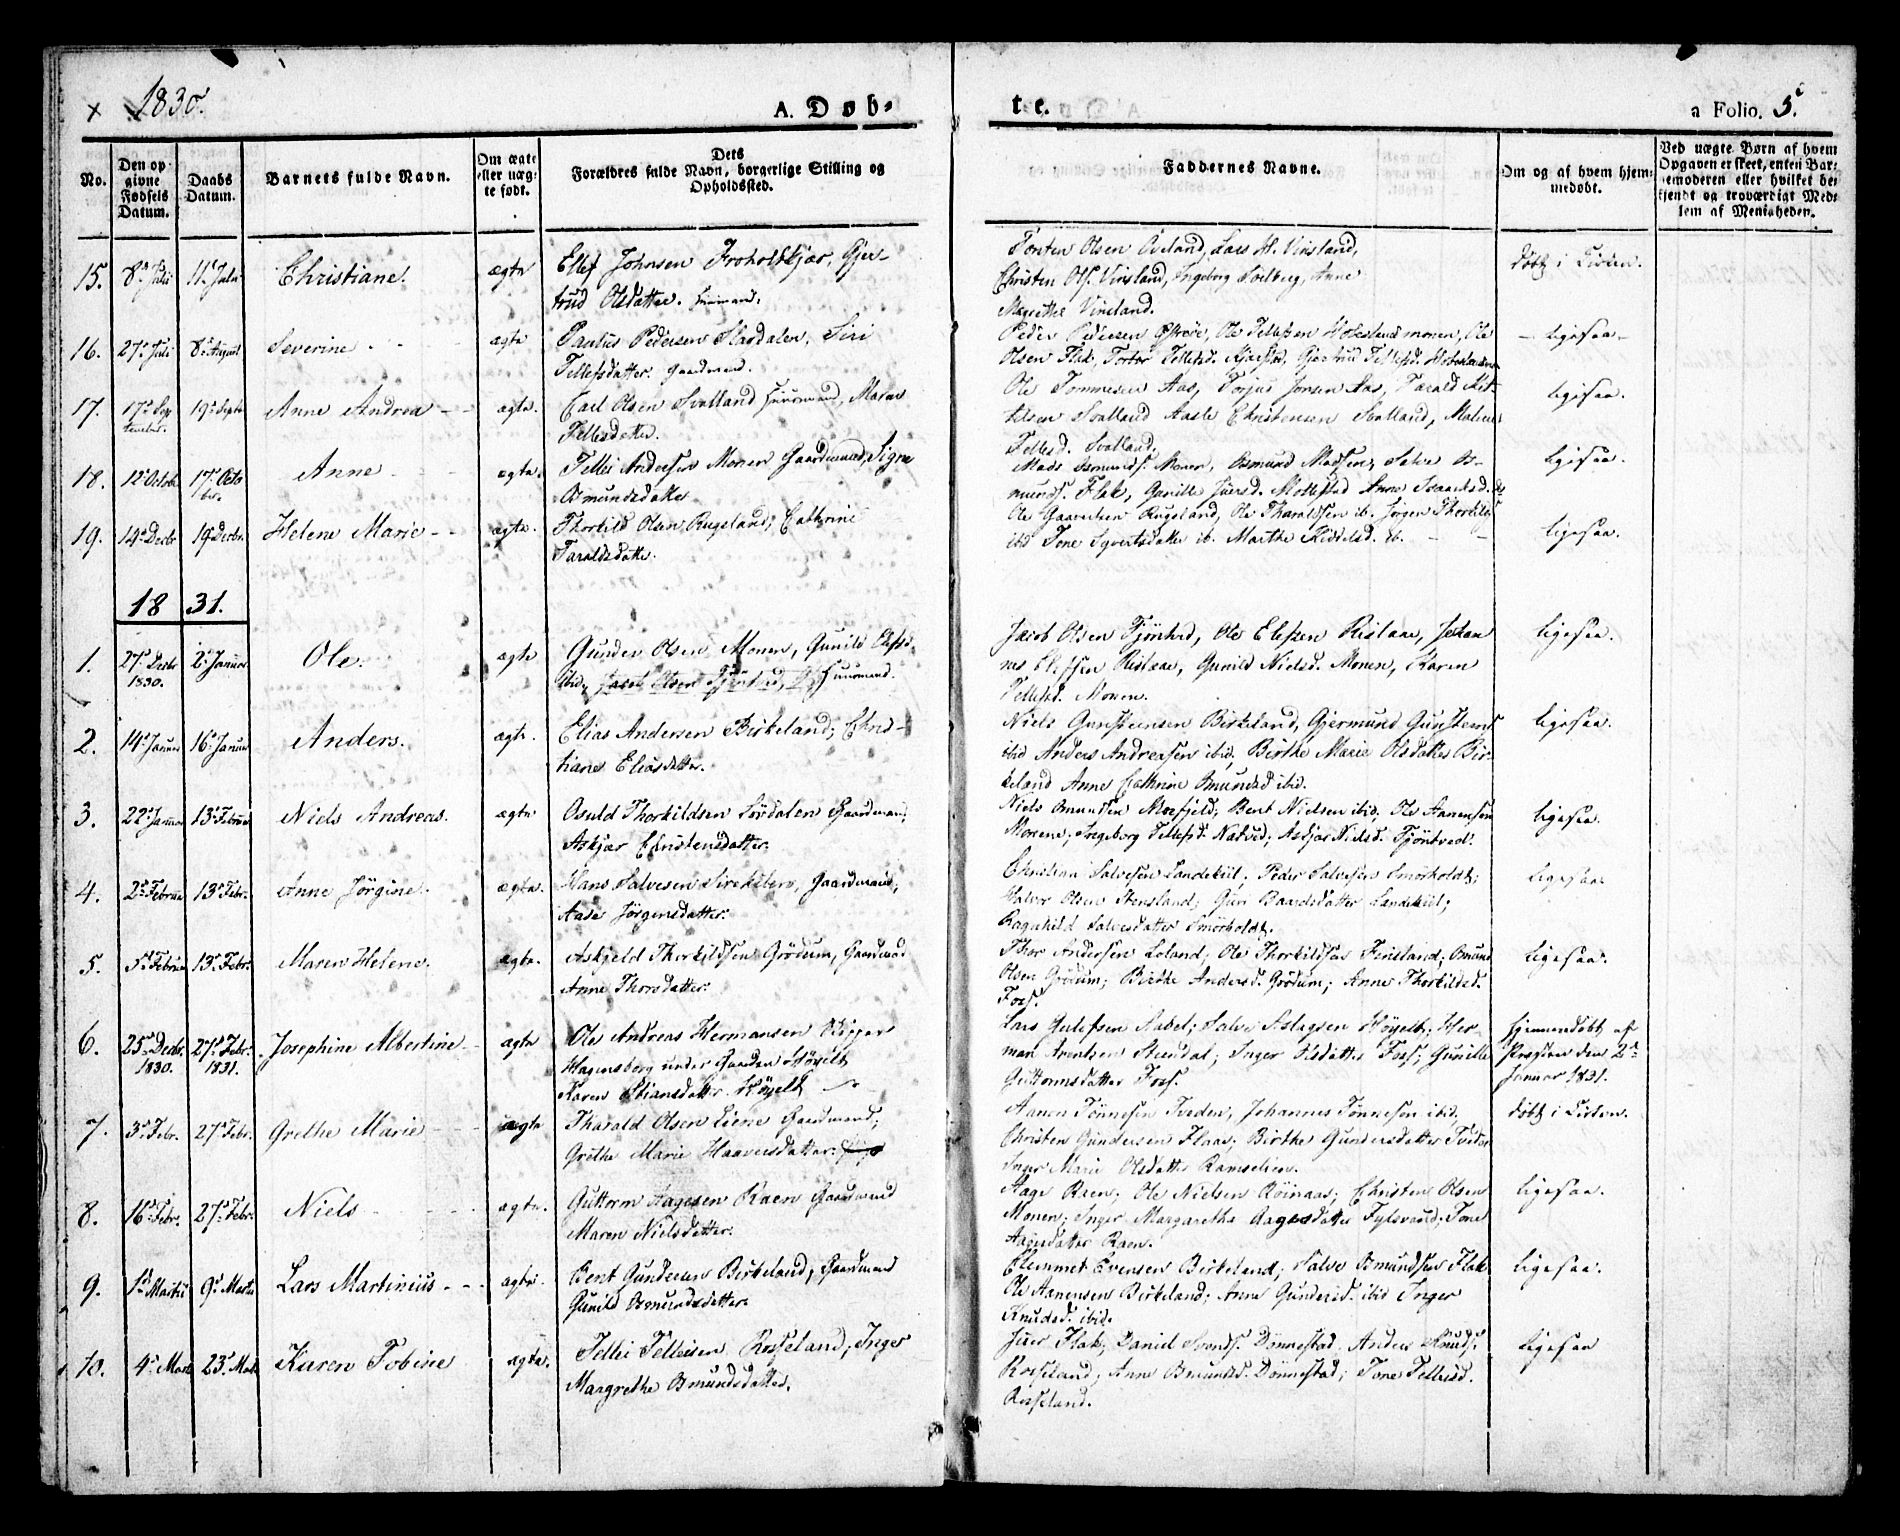 1830.
A. Døb-
te.
a Folio. 5.
No.
Den op
givne
Fødsels
Datum.
Daabs
Datum.
Barnets fulde Navn.
Om ægte
eller uæg-
te født.
Dets
Forældres fulde Navn, borgerlige Stilling og
Opholdssted.
Faddernes Navne.
Om og af hvem hjem-
medøbt.
Ved uægte Børn af hvem
Opgaven er skeet, enten Bar-
nemoderen eller hvilket be-
kjendt og troværdigt Med-
lem af Menigheden.
15. 8de Juli 11te Juli Christiane. ægte Ellef Johnsen Froholtkjær, Gjer-
trud Olsdatter. Huusmand.
Olsen Aveland, Lars Vinsland,
Christen Ols. Vinsland, Ingeborg Anne
Magrethe Vinsland.
døbt i Kirken.
16. 27de Juli 8de August Severine ægte Paulus Pedersen Slagdalen, Siri
Tellefsdatter. Gaardmand.
Peder Pedersen Ole Tellefsen Ole
Olsen Flak,
ligesaa
17. 17de Sep-
tember. 19de Septb. Anne Andrea ægte. Carl Olsen Svalland Huusmand, Maren
Tellefsdatter.
Ole Tommesen Aas, Torjus Jonsen Aas, Tarald Kit-
telsen Svalland Aasle Christensen Svalland, Malene
Tellefsd. Svalland.
ligesaa.
18. 12te Octob. 17de Octo-
ber. Anne ægte. Tellef Andersen Monen Gaardmand, Signe
Osmundsdatter
Mads Osmunds. Monen, Osmund Madsen, Salve Os-
munds. Flak, Gunille Mollestad Anne
ligesaa.
19. 14de Decbr 19de Decbr. Helene Marie ægte. Thorkild Olsen Rugsland, Cathrine
Taraldsdatter.
Ole Rugsland, Ole Tharaldsen ib. Jørgen Thorkilds
ibd Tone Syvertsdatter ib. Marthe Kiddelsd. ib.
ligesaa.
1831.
1. 27de Decbr
1830. 2de Januar Ole. ægte Gunder Olsen Monen, Gunild
ibid, Jacob Olsen Huusmand.
Jacob Olsen Ole Ellefsen Rislaae, Johan
nes Ellefsen Rislaae, Gunild Nielsd. Monen, Karen
Tellefsd. Monen.
ligesaa.
2. 14de Januar 16de Januar Anders. ægte. Elias Andersen Birkeland; Chris-
tiane Eliasdatter.
Niels Gunstensen Birkeland, Gjermund Gunstens
ibid Anders Andreasen ibid, Birthe Marie Olsdatter Bir-
keland Anne Cathrine Osmundsd ibid.
ligesaa.
3. 22de Januar 13de Februar Niels Andreas. ægte Osuld Thorkildsen Sørdalen Gaardmand,
Askjær Christensdatter.
Niels Omundsen Mosfjeld, Bent Nielsen ibid, Ole Aanensen
Monene, Ingeborg Tellefsd. Askjær Nielsd.
ligesaa.
4. 2de Februar 13de Febr. Anne Jørgine. ægte. Hans Salvesen Gaardmand,
Aase Jørgensdatter.
Christian Salvesen Landekiil, Peder Salvesen Smørholdt;
Halvor Olsen Stensland; Guri Baardsdatter Landekiil;
Ragnhild Salvesdatter Smørholdt.
Ligesaa.
5. 5te Februar 13de Febr. Maren Helene. ægte. Askjeld Thorkildsen Grødum, Gaardmand
Anne Thorsdatter.
Thor Andersen Loland; Ole Thorkildsen Finsland; Omund
Olsen Grødum; Birthe Andersd. Grødum; Anne Thorkildsd.
Foss.
Ligesaa.
6. 25de Decbr.
1830. 27de Febr.
1831. Josephine Albertine ægte Ole Andreas Hermansen Skipper
Hagensborg under Gaarden Høyelt
Karen Stiansdatter Høyelt
Lars Gulefsen Salve Aslagsen Høyelt; Her-
man Arentsen Inger Olsdatter Foss; Gunille
Guttormsdatter Foss.
hjemmedøbt af
Præsten den 2de
Januar 1831.
7. 3de Febr. 27de Febr. Grethe Marie ægte Tharald Olsen Liene Gaardmand;
Grethe Marie Haaversdatter.
Aanen Tønnesen Tveden, Johannes Tønnesen ibid,
Christen Gundersen Flaas; Birthe Gundersdatter Tveden
Inger Marie Olsdatter Ramselien.
døbt i Kirken.
8. 16de Febr. 27de Febr. Niels ægte. Guttorm Aagesen Raen Gaardmand
Maren Nielsdatter.
Aage Raen; Ole Nielsen Røinaas; Christen Olsen
Monen; Inger Margarethe Aagesdatter Tone
Aagesdatter Raen.
ligesaa.
9. 1ste Martii 9de Marts Lars Martinius ægte. Bent Gundersen Birkeland, Gaardmand
Gunild Osmundsdatter.
Clemmet Evensen Birkeland; Salve Osmundsen Flak
Ole Aanensen Birkeland; Anne Gundersd. ibid Inger
Knudsd. ibid.
ligesaa.
10. 4de Marts 23de Marts Karen Tobine ægte. Tellef Tellefsen Rosseland; Inger
Margrethe Osmundsdatter.
Flak, Daniel Svends. Dønnestad, Anders Knuds.
Rosseland; Anne Osmundsd. Dønnestad; Tone Tellefsd.
Rosseland.
ligesaa